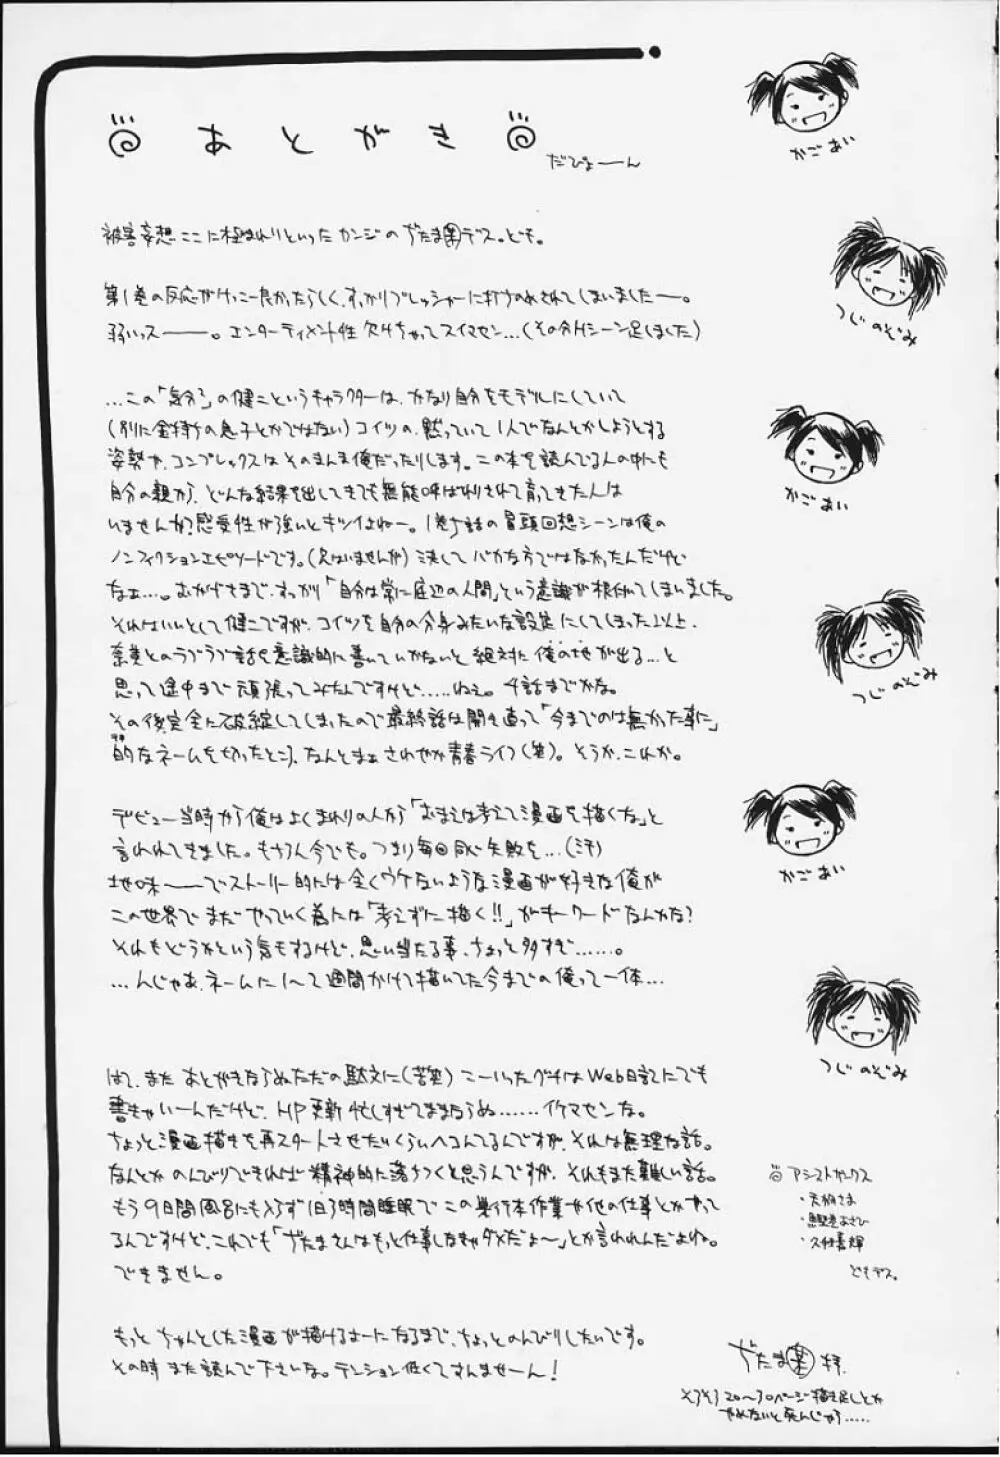 あとがき
だひょーん
被害妄想ここに極まれりといったカンジのぢたま㊚デス。ども。
第1巻の反応がけっこー良かったらしく、すっかりプレッシャーに打ちのめされてしまいましたー。
弱いっスー。エンターティメント性欠けちゃってスイマセン…(その分Hシーン足しました)
…この「気分2」の健二というキャラクターは、かなり自分をモデルにしていて
(別に金持ちの息子とかではない)コイツの、黙っていて1人でなんとかしようとする
姿勢や、コンプレックスはそのまんま俺だったりします。この本を読んでる人の中にも
自分の親から、どんな結果を出してきても無能呼ばわりされて育ってきた人は
いませんか?感受性が強いとキツイよねー。1巻5話の冒頭回想シーンは俺の
ノンフィクションエピソードです。(兄はいませんが)決してバカな方ではなかったんだけど
なぁ…。おかげさまで、すっかり「自分は常に底辺の人間」という意識が根付いてしまいました。
それはいいとして健二ですが、コイツを自分の分身みたいな設定にしてしまった以上、
奈美とのラブラブ話を意識的に書いていかないと絶対に俺の地が出る…と
思って途中まで頑張ってみたんですけど……ねぇ。4話までかな。
その後完全に破綻してしまったので最終話は開き直って「今までのは無かった事に」
的なネームを切ったところ、なんとまぁさわやか青春ライフ(笑)。そうか、これか。
デビュー当時から俺はよくまわりの人から「おまえは考えて漫画を描くな」と
言われてきました。もちろん今でも。つまり毎回同じ失敗を…(汗)
地味ーでストーリー的には全くウケないような漫画が好きな俺が
この世界でまだやっていく為には「考えずに描く!!」がキーワードなんかな?
それもどうかという気もするけど、思い当たる事、ちょっと多すぎ……。
…んじゃあ、ネームに1〜2週間かけて描いてた今までの俺って一体…
はて、またあとがきならぬただの駄文に(苦笑)こーいったグチはWeb日記にでも
書きゃいーんだけど、HP更新忙しすぎてままならぬ……イケマセンな。
ちょっと漫画描きを再スタートさせたいくらいヘコんでるんですが、それは無理な話。
なんとかのんびりできれば精神的に落ちつくと思うんですが、それもまた難しい話。
もう9日間風呂にも入らず1日3時間睡眠でこの単行本作業や他の仕事とかやって
るんですけど、これでも「ぢたまさんはもっと仕事しなきゃダメだよ〜」とか言われんだよね。
できません。
もっとちゃんとした漫画が描けるよーになるまで、ちょっとのんびりしたいです。
その時また読んで下さいな。テンション低くてすんませーん!
かごあい
つじのぞみ
かごあい
つじのぞみ
かごあい
つじのぞみ
アシストサンクス
どもデス。
ぢたま 拝
そろそろ20〜30ページ描き足しとか
やめないと死んじゃう……